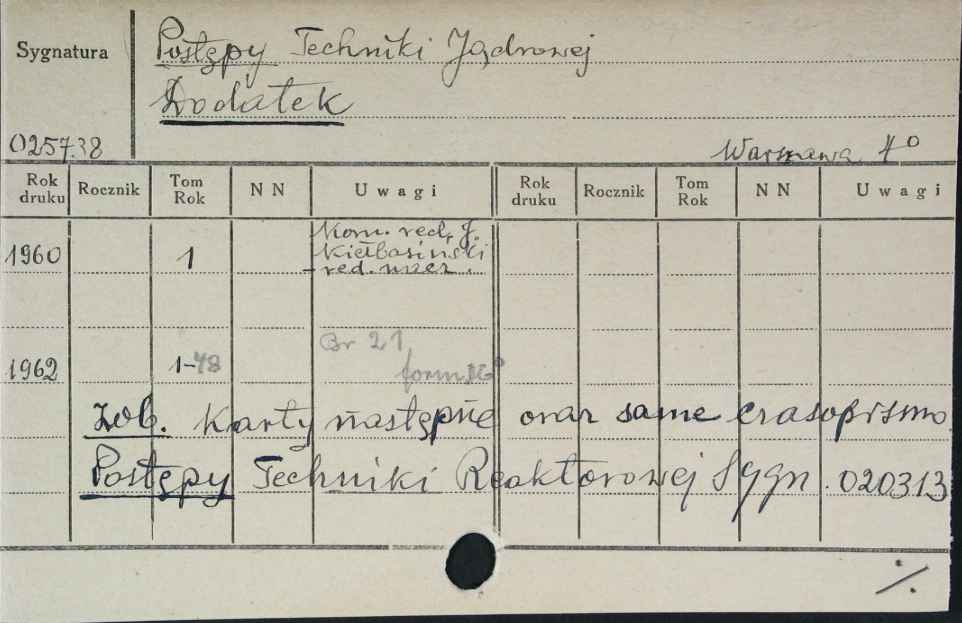 Sygnatura
Postępy Techniki Jądrowej
Dodatek
025738
Warszawa 4°
Rok druku Rocznik Tom Rok NN Uwagi Rok druku Rocznik Tom Rok NN Uwagi
1960 1 Kom. red. J.
Kiełbasiński
- red. nacz.
Br 21
1962 1-48 form
Zob. Karty następne oraz same czasopismo
Postępy Techniki Reaktorowej Sygn. 020313
·/.